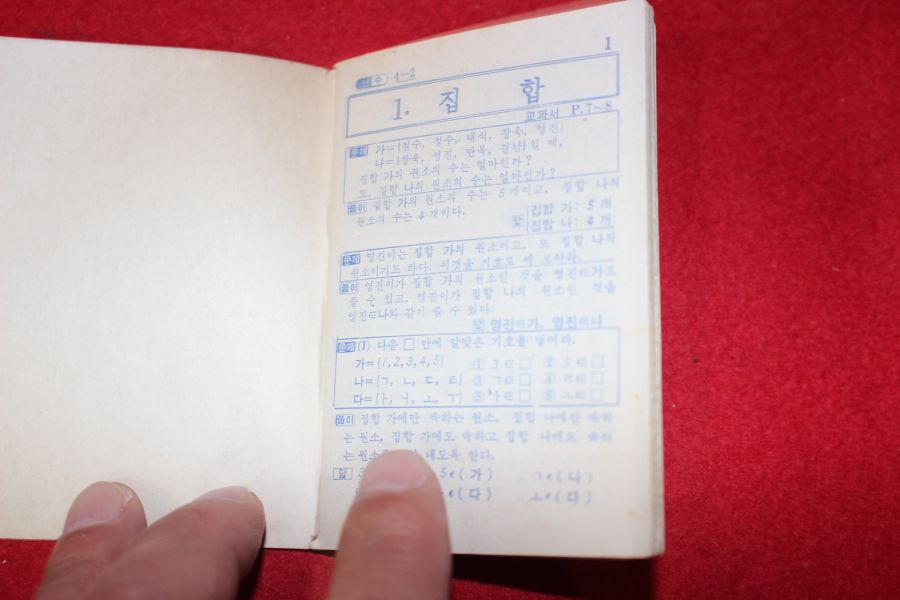 1
산수 4-2
1. 집 합
교과서 P. 7~8
문제 가={철수, 정수, 태식, 창욱, 영진}
나={창욱, 영진, 만복, 길남}일 때,
집합 가의 원소의 수는 얼마인가?
또, 집합 나의 원소의 수는 얼마인가?
풀이 집합 가의 원소의 수는 5개이고, 집합 나의
원소의 수는 4개이다.
답 집합 가: 5개
집합 나: 4개
문제 영진이는 집합 가의 원소이고, 또 집합 나의
원소이기도 하다. 이것을 기호로 써 보아라.
풀이 영진이가 집합 가의 원소인 것을 영진∈가로
쓸 수 있고, 영진이가 집합 나의 원소인 것을
영진∈나와 같이 쓸 수 있다.
답 영진∈가, 영진∈나
문제 (1) 다음 □ 안에 알맞은 기호를 넣어라.
가={1, 2, 3, 4, 5} ① 3∈□ ② 5∈□
나={ㄱ, ㄴ, ㄷ, ㄹ} ③ ㄱ∈□ ④ ㄹ∈□
다={ㅏ, ㅓ, ㅗ, ㅜ} ⑤ ㅏ∈□ ⑥ ㅗ∈□
풀이 집합 가에만 속하는 원소, 집합 나에만 속하
는 원소, 집합 가에도 속하고 집합 나에도 속하
는 원소 내도록 한다.
답 3 5∈(가) ㄱ∈(나)
∈(다) ㅗ∈(다)